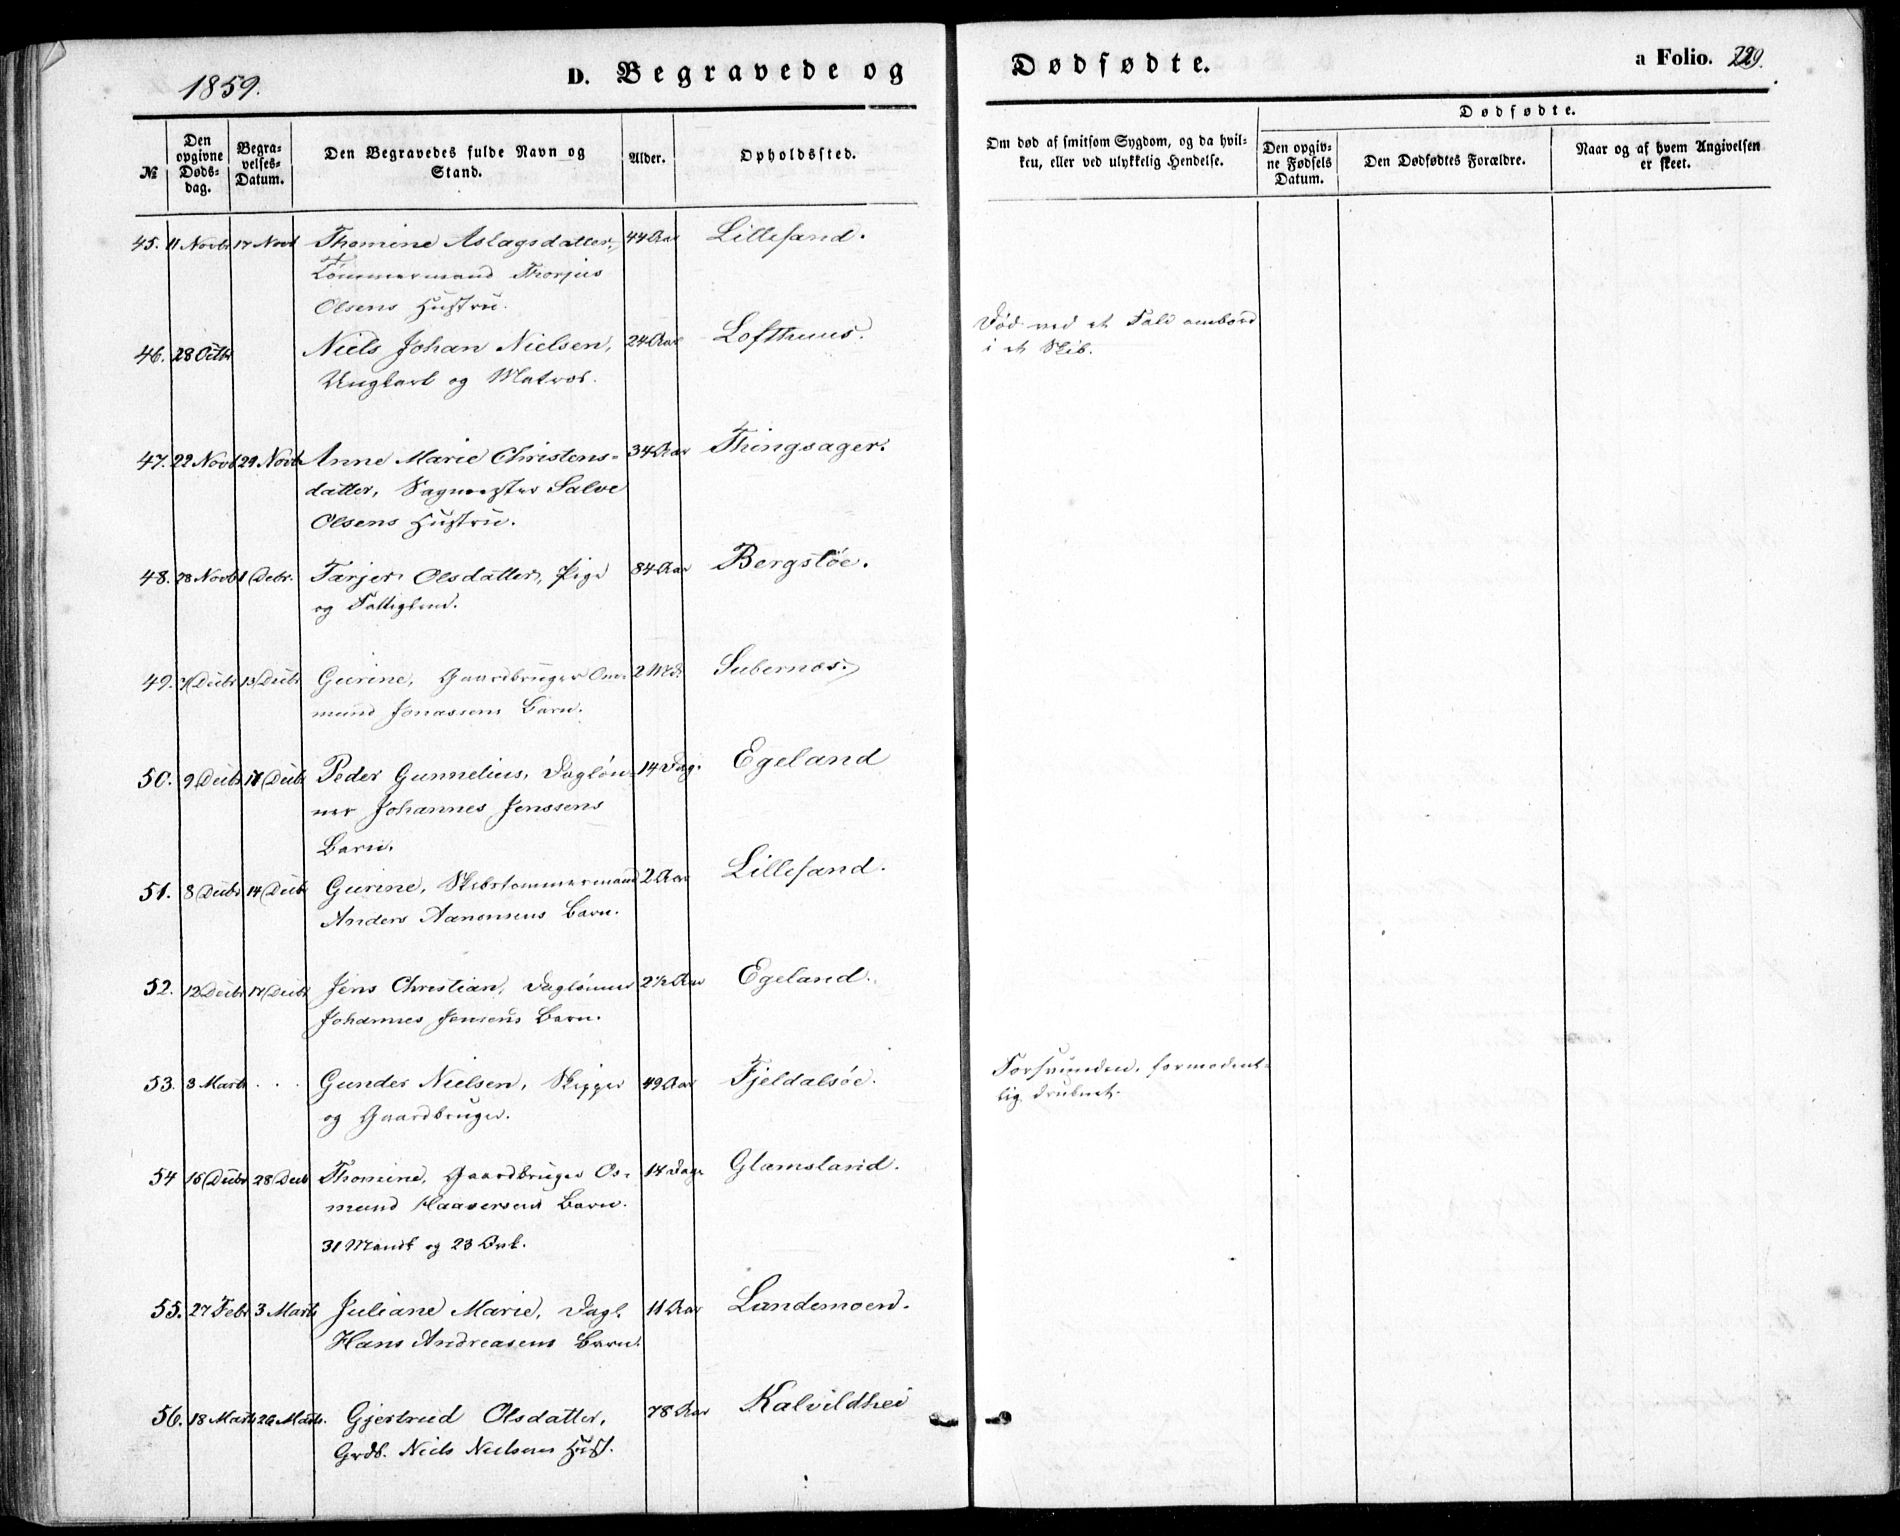 1859.
D. Begravede og Dødfødte.
a Folio. 229.
№
Den opgivne Døds-dag.
Begra-velses-Datum.
Den Begravedes fulde Navn og Stand.
Alder.
Opholdssted.
Om død af smitsom Sygdom, og da hvil-
ken, eller ved ulykkelig Hendelse.
Dødfødte.
Den opgiv-ne Fødsels Datum.
Den Dødfødtes Forældre.
Naar og af hvem Angivelsen er skeet.
45. 11 Novbr 17 Novb Thomine Aslagsdatter, 44 Aar Lillesand.
Tømmermand Thorjus
Olsens Hustru.
46. 28 Octbr Niels Johan Nielsen, 24 Aar Lofthuus. Død ved et Fald ombord
Ungkarl og Matros. i et Skib.
47. 22 Novb 29 Novb Anne Marie Christens- 34 Aar Thingsager.
datter, Sagmester Salve
Olsens Hustru.
48. 28 Novb 1 Debr. Tarjer Olsdatter, Pige 84 Aar Bergstøe.
og Fattiglem.
49. Decbr 13 Decbr Gurine, Gaardbruger Om- 2 Mdr
mund Jonassens Barn.
50. 9 Decbr 17 Decbr Peder Gunnelius, Dagløn- 14 Dag. Egeland
ner Johannes Jenssens
Barn.
51. 8 Decbr 14 Decb Gurine, Skibstømmermand 2 Aar Lillesand.
Anders Aanonsens Barn.
52. 12 Decbr 17 Decbr Jens Christian, Daglønner 2½ Aar Egeland.
Johannes Jensens Barn.
53. 3 Marts . . . Gunder Nielsen, Skipper 49 Aar Fjeldalsøe. Forsvunden, formodent-
og Gaardbruger. lig druknet.
54 16 Decbr 28 Decb Thomine, Gaardbruger Os- 14 Dage Glamsland.
mund Haaversens Barn.
31 Mandk og 23 Qvk.
55. 27 Febr 3 Marts Juliane Marie, Dagl. 11 Aar Landemoen.
Hans Andreasens Barn.
56. 18 Marts 26 Marts. Gjertrud Olsdatter, 78 Aar Kalvildhei
Grdb. Niels Nielsens Hust.